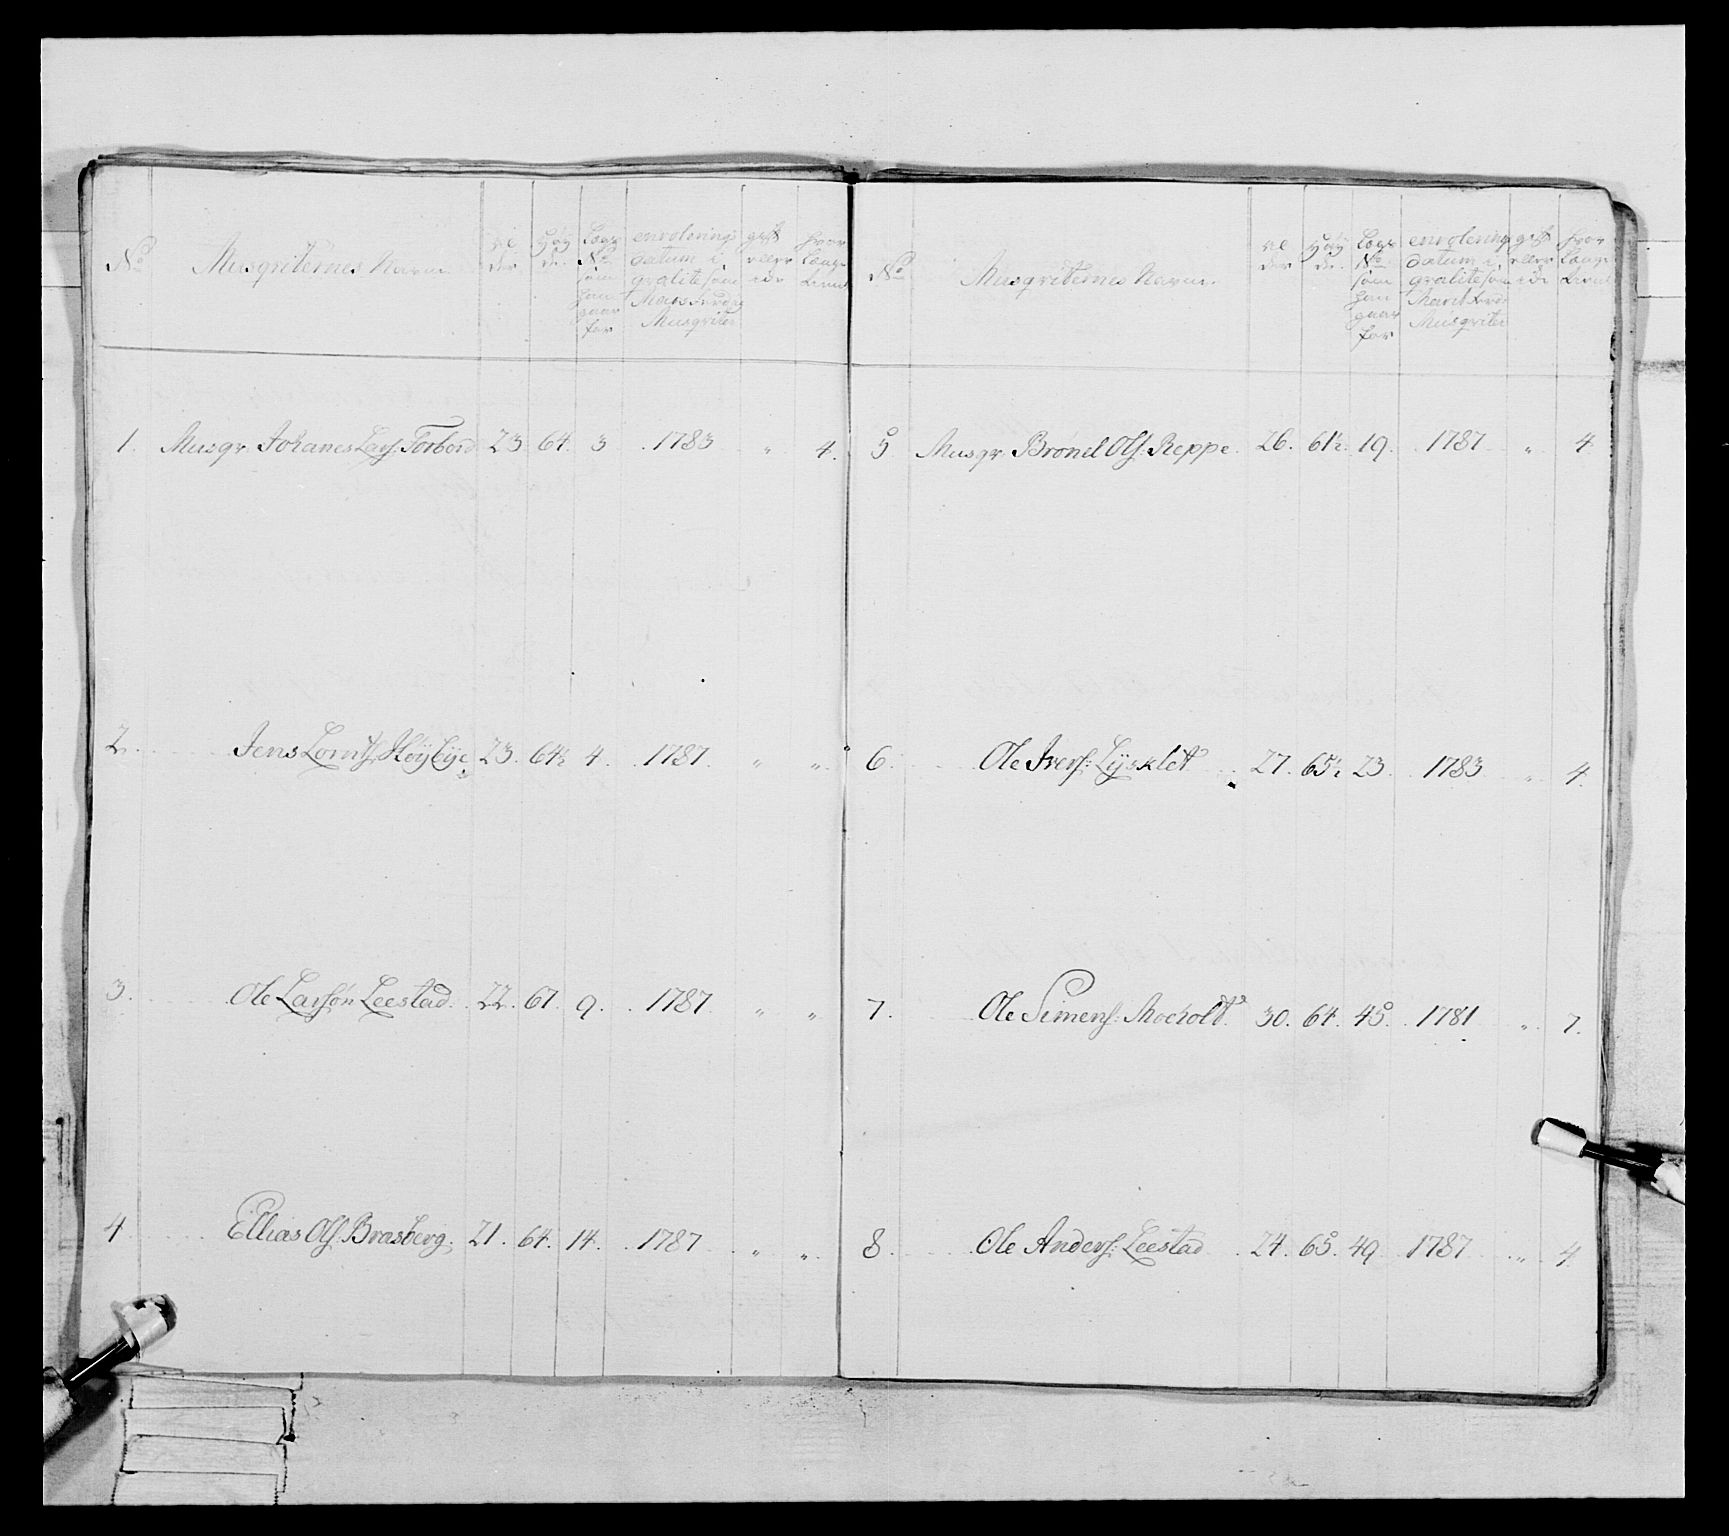 No Musqviternes Navn al der Høy de. Laas No som han gaar for enrolerings datum i qvalite som Musqviter gift eller ei hvor Længe tient
1. Musqv: Johanes Lars: Forbord 23. 64. 3 1783 " 4.
2. Jens Lornts: Høybÿe 23. 64½ 4. 1787. " "
3. Ole Larsøn Leestad. 22. 67. 9. 1787 " "
4 Ellias Ols: Brasberg. 21. 64. 14. 1787 " "
No Musqvitternes Navn. al der Høy de. No som han gaar for enrolering datum i qvalite som Musqviter gift eller hvor Længe tient
5 Musqv: Brønel Ols: Reppe. 26. 61½. 19. 1787 " 4.
6. Ole Ivers: Lÿsklet 27. 65½ 23. 1783 " 4.
7. Ole Simens: Moeholt. 30. 64. 45. 1781 " 7.
8. Ole Anders: Leestad 24. 65. 49 1787 " 4.